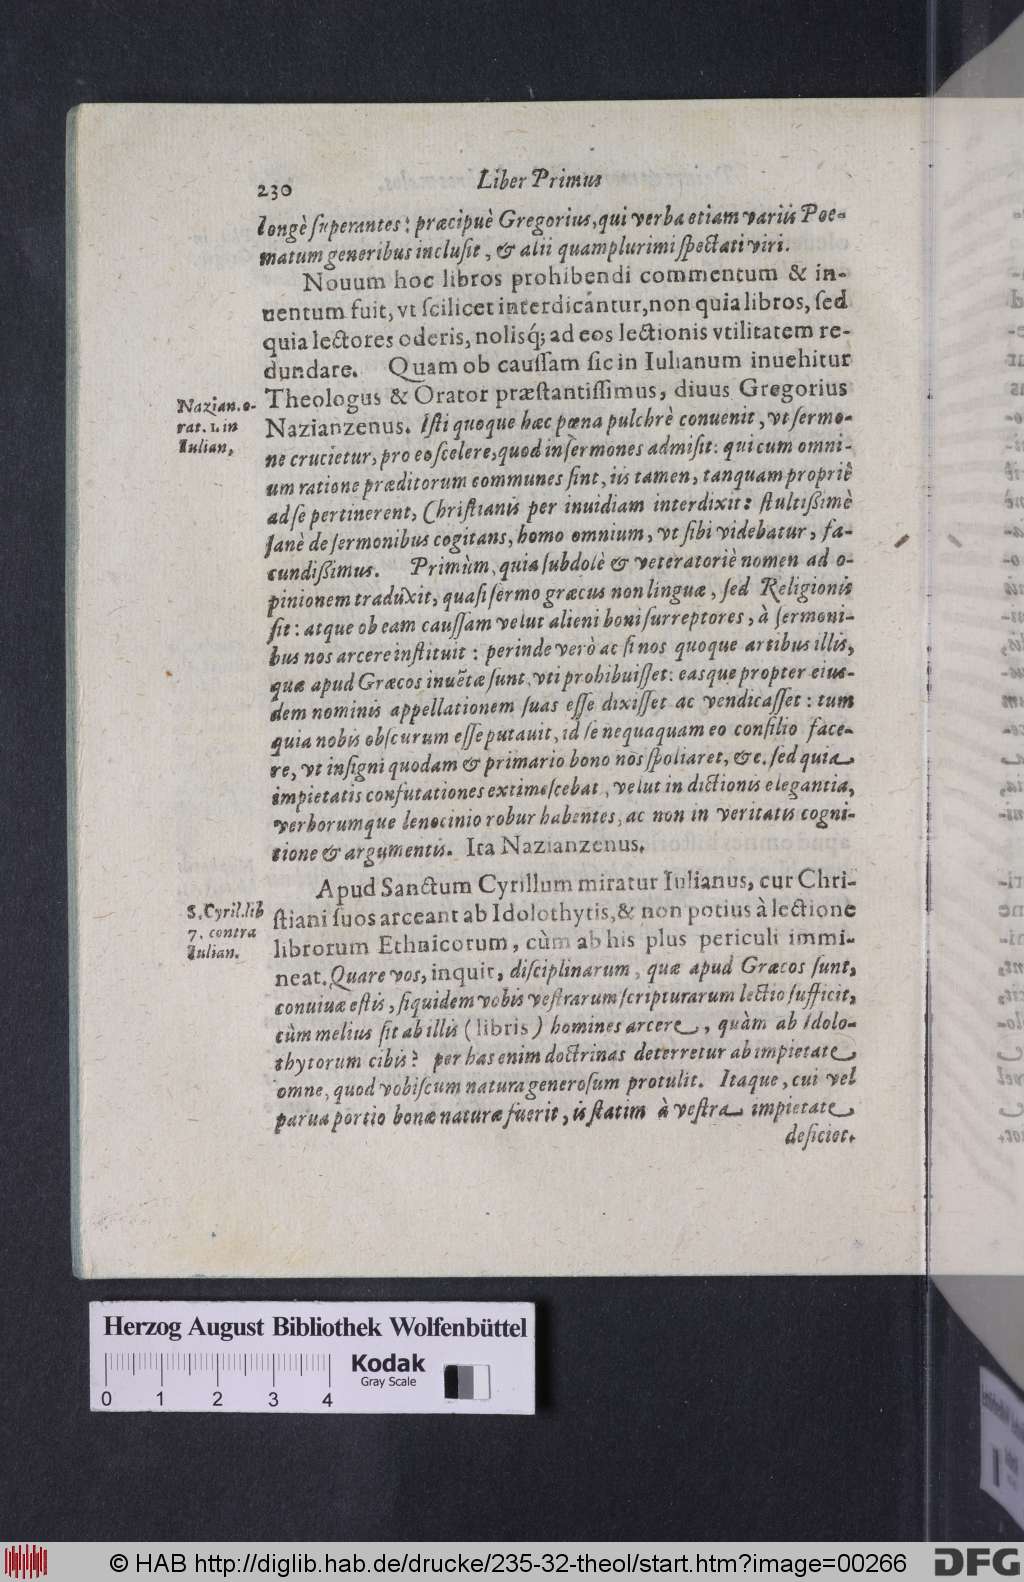 230 Liber Primus
longè superantes: præcipuè Gregorius, qui verba etiam variis Poe-
matum generibus inclusit, & alii quamplurimi spectati viri.
Nouum hoc libros prohibendi commentum & in-
uentum fuit, vt scilicet interdicantur, non quia libros, sed
quia lectores oderis, nolisq́; ad eos lectionis vtilitatem re-
dundare. Quam ob caussam sic in Iulianum inuehitur
Theologus & Orator præstantissimus, diuus Gregorius
Nazianzenus. Isti quoque hæc pœna pulchrè conuenit, vt sermo-
ne crucietur, pro eo scelere, quod in sermones admisit: qui cum omni-
um ratione præditorum communes sint, iis tamen, tanquam propriè
ad se pertinerent, Christianis per inuidiam interdixit: stultißimè
sanè de sermonibus cogitans, homo omnium, vt sibi videbatur, fa-
cundißimus. Primùm, quia subdolè & veteratoriè nomen ad o-
pinionem traduxit, quasi sermo græcus non linguæ, sed Religionis
sit: atque ob eam caussam velut alieni boni surreptores, à sermoni-
bus nos arcere instituit: perinde verò ac si nos quoque artibus illis,
quæ apud Græcos inuẽtæ sunt, vti prohibuisset: easque propter eius-
dem nominis appellationem suas esse dixisset ac vendicasset: tum
quia nobis obscurum esse putauit, id se nequaquam eo consilio face-
re, vt insigni quodam & primario bono nos spoliaret, &c. sed quia
impietatis confutationes extimescebat, velut in dictionis elegantia,
verborumque lenocinio robur habentes, ac non in veritatis cogni-
tione & argumentis. Ita Nazianzenus.
Nazian. o-
rat. 1. in
Iulian.
Apud Sanctum Cyrillum miratur Iulianus, cur Chri-
stiani suos arceant ab Idolothytis, & non potius à lectione
librorum Ethnicorum, cùm ab his plus periculi immi-
neat. Quare vos, inquit, disciplinarum, quæ apud Græcos sunt,
conuiuæ estis, siquidem vobis vestrarum scripturarum lectio sufficit,
cùm melius sit ab illis (libris) homines arcere, quàm ab Idolo-
thytorum cibis? per has enim doctrinas deterretur ab impietate
omne, quod vobiscum natura generosum protulit. Itaque, cui vel
parua portio bonæ naturæ fuerit, is statim à vestra impietate
deficiet.
S. Cyril. lib
7. contra
Iulian.
Herzog August Bibliothek Wolfenbüttel
Kodak
Gray Scale
0 1 2 3 4
© HAB http://diglib.hab.de/drucke/235-32-theol/start.htm?image=00266
DFG